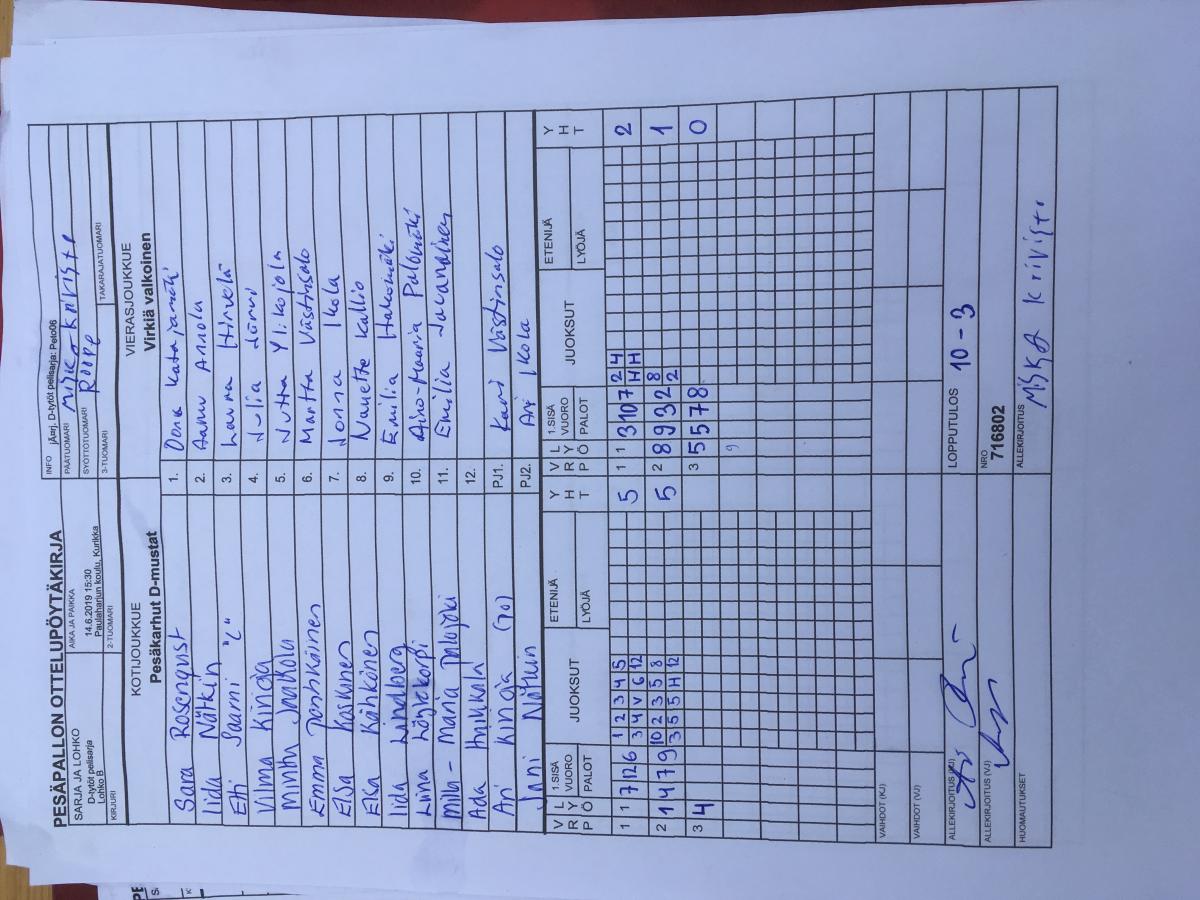 PESÄPALLON OTTELUPÖYTÄKIRJA
SARJA JA LOHKO
D-tytöt pelisarja
Lohko B
AIKA JA PAIKKA
14.6.2019 15:30
Paulaharjun koulu, Kurikka
INFO jÄrj. D-tytöt pelisarja: Peto06
PÄÄTUOMARI MISKA KRIVISTO
SYÖTTÖTUOMARI ROOPE
KIRJURI
2-TUOMARI
3-TUOMARI
TAKARAJATUOMARI
KOTIJOUKKUE
Pesäkarhut D-mustat
VIERASJOUKKUE
Virkiä valkoinen
Sara Rosenqvist 1. Oona Katajamäki
Iida Nätkin 2. Aamu Annola
Etti Saarni "C" 3. Laura Hirvelä
Vilma Kinoja 4. Julia
Minttu Jaakola 5. Jutta Ylikojola
Emma 6. Martta Västinsalo
Elsa Koskinen 7. Jonna Ikola
Elsa Kähkönen 8. Nanette Kallio
Iida Lindberg 9. Emilia Hakomäki
Liina Löytökorpi 10. Aino-Maaria Palomäki
Milla-Maria Palojoki 11. Emilia
Ada 12.
Ari Kinoja PJ1. Kari Västinsalo
Jani PJ2. Ari Ikola
V L
R Y
P Ö
1.SISÄ
VUORO
PALOT
JUOKSUT
ETENIJÄ
LYÖJÄ
Y
H
T
V L
R Y
P Ö
1.SISÄ
VUORO
PALOT
JUOKSUT
ETENIJÄ
LYÖJÄ
Y
H
T
1 1 7 12 6 1 2 3 4 5 5 1 1 3 10 7 2 4 2
3 4 V 6 12 H H
2 1 4 7 9 10 2 3 5 8 5 2 8 9 3 2 8 1
3 5 5 H 12 2
3 4 3 5 5 7 8 0
9
VAIHDOT (KJ)
VAIHDOT (VJ)
ALLEKIRJOITUS (KJ)
LOPPUTULOS 10 - 3
ALLEKIRJOITUS (VJ)
NRO
716802
HUOMAUTUKSET
ALLEKIRJOITUS
MISKA Krivisto